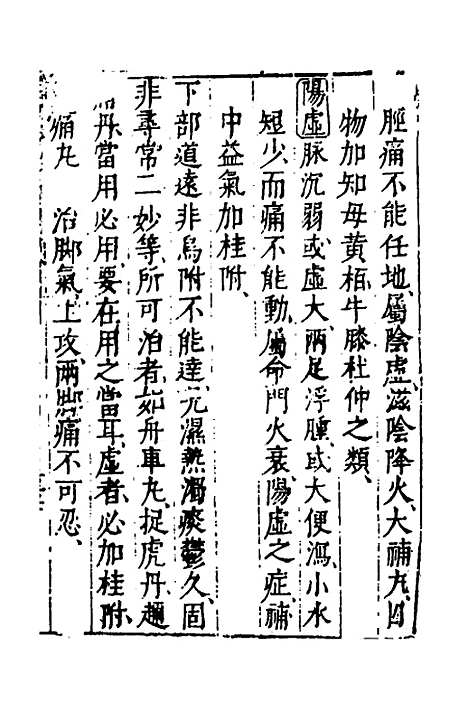 脛痛不能任地、屬陰虛、滋陰降火、大補丸、四
物加知母黃栢、牛膝杜仲之類、
陽虛脉沉弱或虛大、兩足浮腫、或大便瀉、小水
短少、而痛不能動、屬命門火衰、陽虛之症、補
中益氣加桂附、
下部道遠、非烏附不能達、尤濕熱濁痰鬱久、固
非尋常二妙等、所可治者、如舟車丸、捉虎丹、趕
痛丹、當用必用、要在用之當耳、虛者、必加桂附、
痛丸 治脚氣上攻、兩脚痛不可忍、